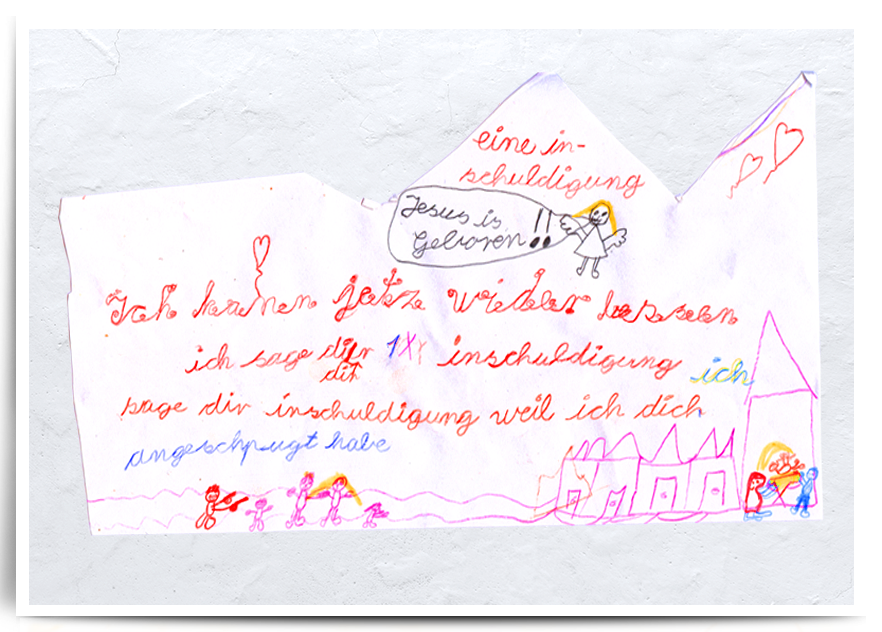 eine in-
schuldigung
Jesus is
Geboren !!
Ich jetze wieder
ich sage dir inschuldigung ich
dir
sage dir inschuldigung weil ich dich
angeschpugt habe